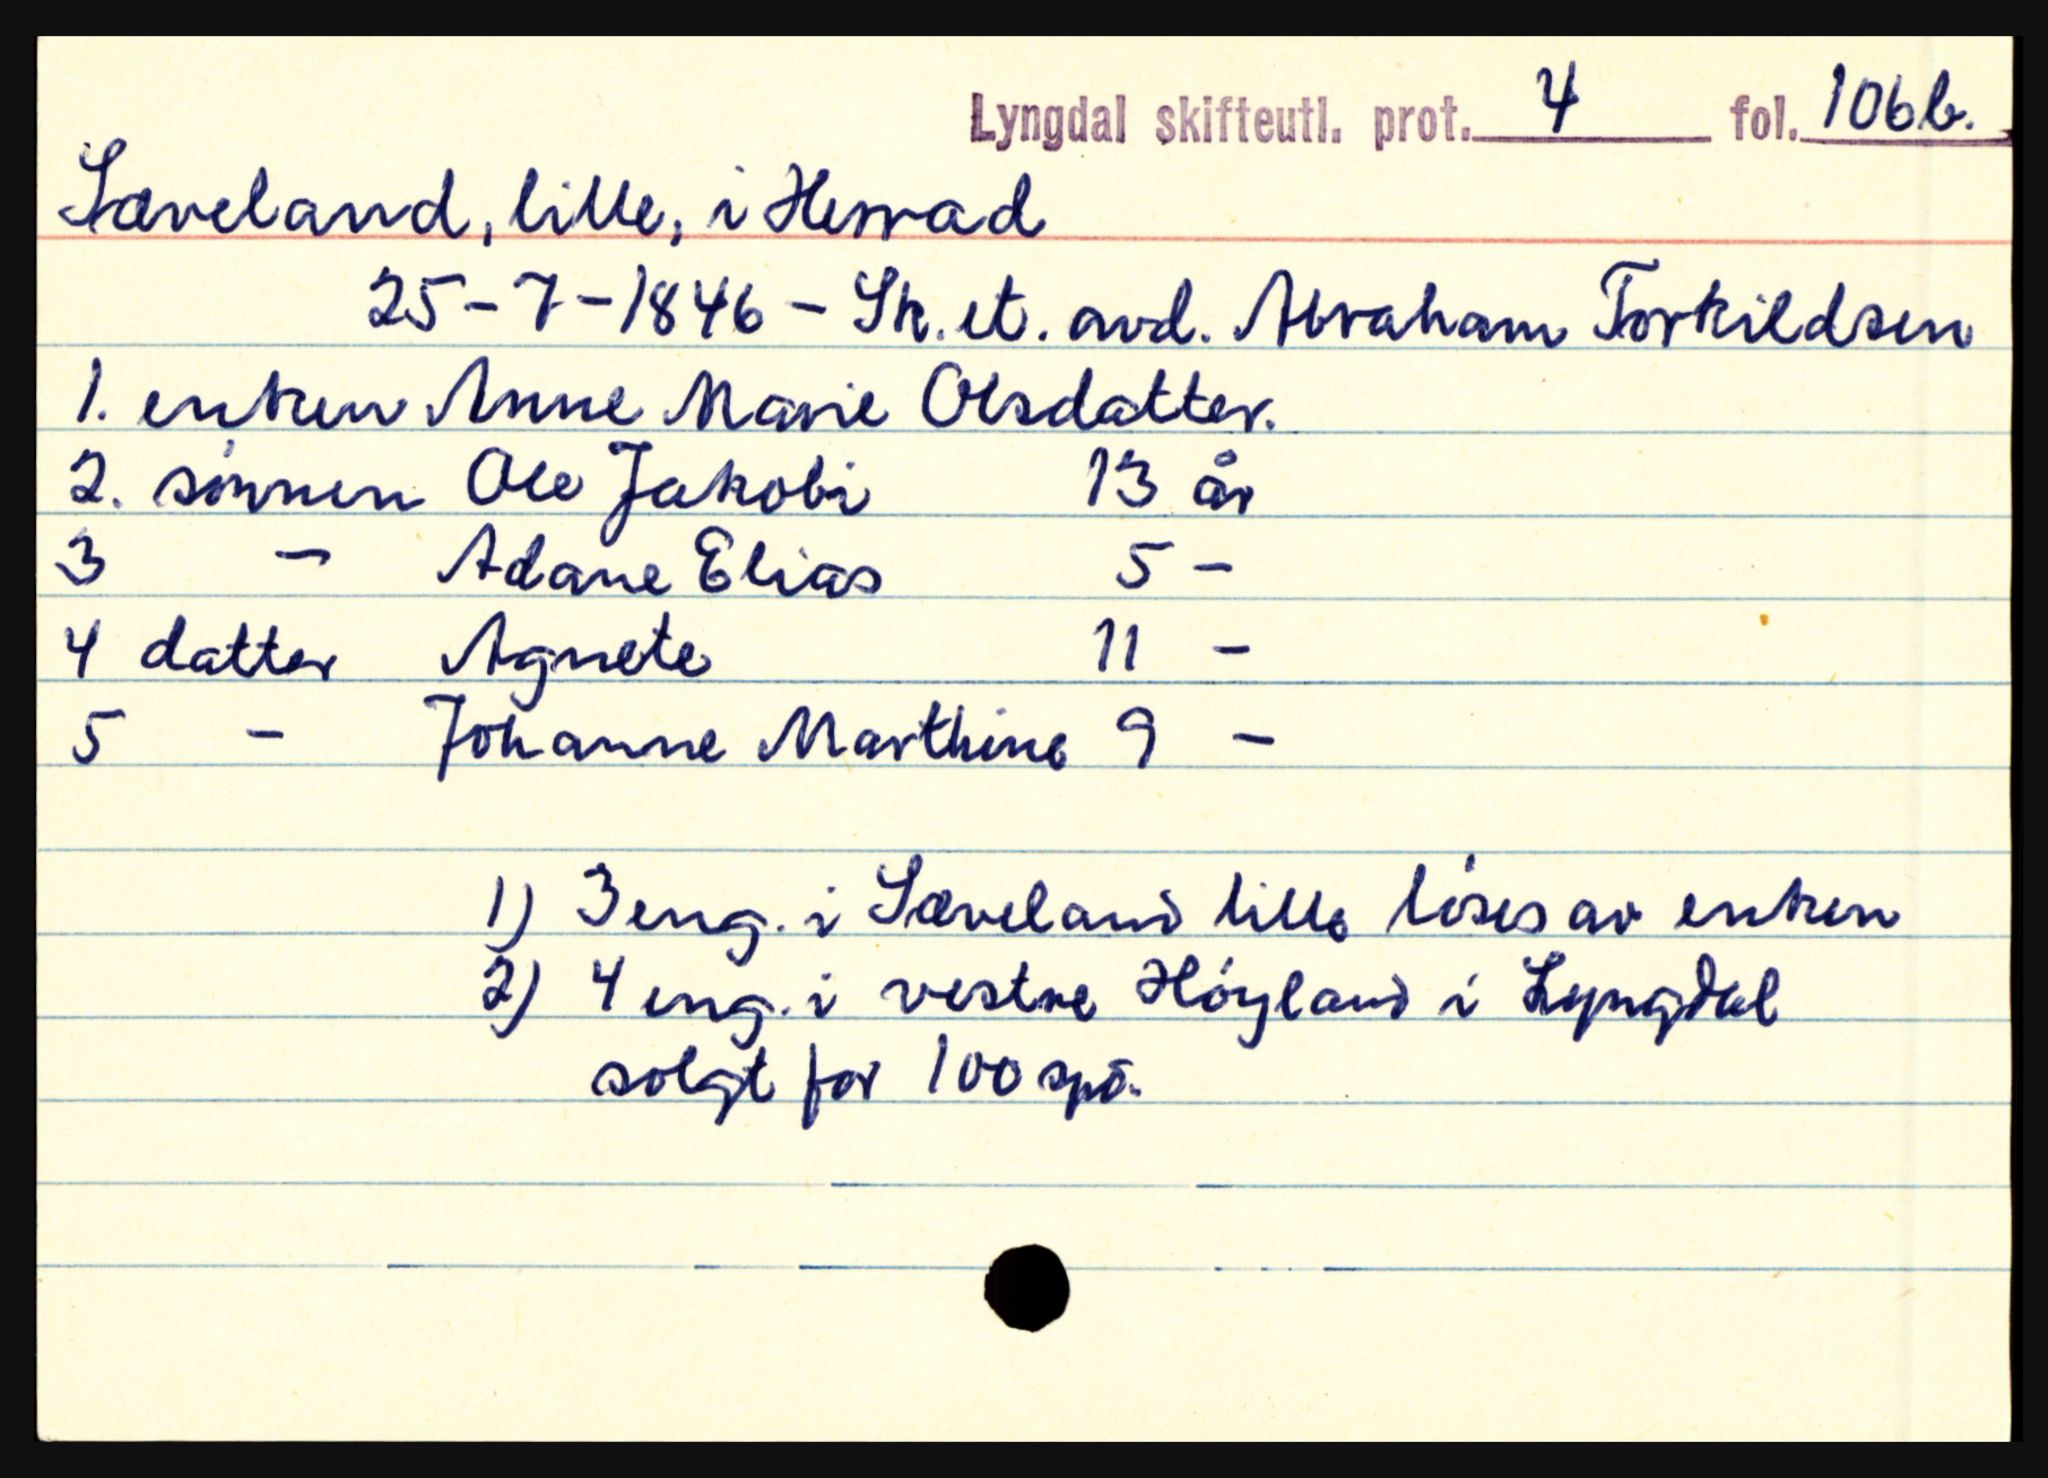 Lyngdal skifteutl. prot. 4 fol. 106b.
Sæveland, lille, i Herrad
25-7-1846 - Sk. et. avd. Abraham Torkildsen
1. enken Anne Marie Olsdatter.
2. sønnen Ole Jakobi 13 år
3 - Adane Elias 5 -
4 datter Agnete 11 -
5 - Johanne Marthine 9 -
1) 3 eng. i Sæveland lille løses av enken
2) 4 eng. i vestre Høyland i Lyngdal
solgt for 100 spd.